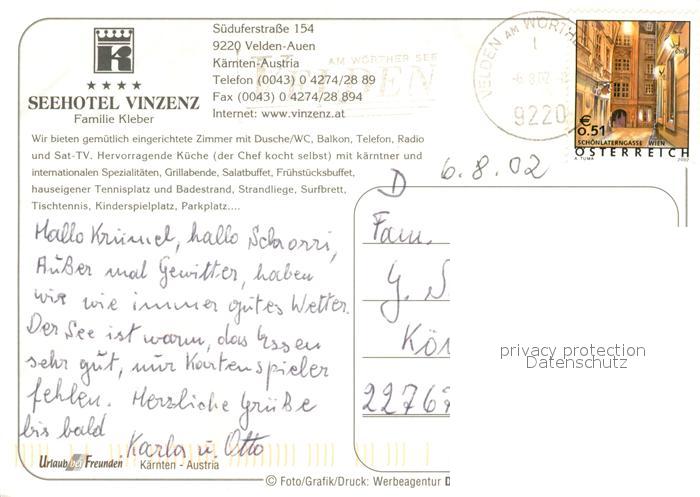 Südufer­straße 154
9220 Velden-Auen
Kärnten-Austria
Telefon (0043) 0 4274/28 89
Fax (0043) 0 4274/28 894
Internet: www.vinzenz.at
K
SEEHOTEL VINZENZ
Familie Kleber
AM WÖRTHER SEE
VELDEN
VELDEN AM WÖRTHER
9220
€ 0.51
SCHÖNLATERNGASSE WIEN
ÖSTERREICH
A. TUMA 2002
Wir bieten gemütlich eingerichtete Zimmer mit Dusche/WC, Balkon, Telefon, Radio
und Sat-TV. Hervorragende Küche (der Chef kocht selbst) mit kärntner und
internationalen Spezialitäten, Grillabende, Salatbuffet, Frühstücksbuffet,
hauseigener Tennisplatz und Badestrand, Strandliege, Surfbrett,
Tischtennis, Kinderspielplatz, Parkplatz....
6.8.02
Hallo Krümel, hallo Schorri,
Außer mal Gewitter, haben
wir wie immer gutes Wetter.
Der See ist warm, das Essen
sehr gut, nur Kartenspieler
fehlen. Herzliche Grüße
bis bald Karla u. Otto
D
Fam.
G. S
Kön
22769
privacy protection
Datenschutz
Urlaub bei Freunden
Kärnten - Austria
© Foto/Grafik/Druck: Werbeagentur D